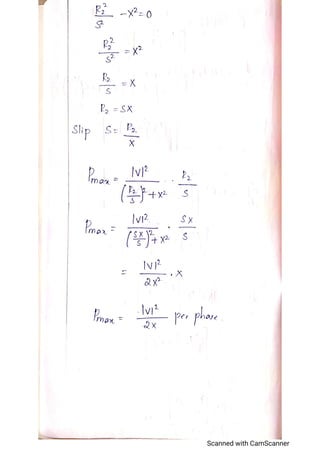 R₂²/S² - X² = 0
R₂²/S² = X²
R₂/S = X
R₂ = SX
Slip S = R₂/X
Pmax = |V|²/((R₂/S)² + X²) · R₂/S
Pmax = |V|²/((SX/S)² + X²) · SX/S
= |V|²/2X² · X
Pmax = |V|²/2X per phase
Scanned with CamScanner